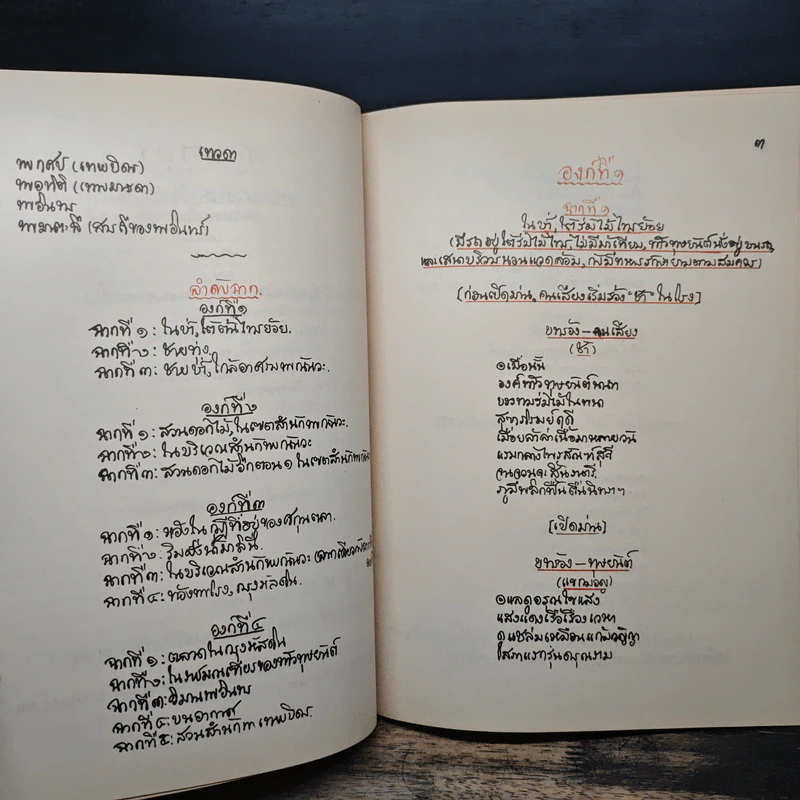 เทวดา
พกาศป (เทพบิดร)
พอทิติ (เทพมารดา)
พอินทร
พมาตะลี (สารถีของพอินทร)
ลำดับฉาก.
องก์ที่ ๑
ฉากที่ ๑: ในป่า, ใต้ต้นไทรย้อย.
ฉากที่ ๒: ชายทุ่ง.
ฉากที่ ๓: ชายป่า, ใกล้อาศรมพกัณวะ.
องก์ที่ ๒
ฉากที่ ๑: สวนดอกไม้, ในเขตสำนักพกัณวะ.
ฉากที่ ๒: ในบริเวณสำนักพกัณวะ
ฉากที่ ๓: สวนดอกไม้อีกตอน ๑ ในเขตสำนักพกัณวะ
องก์ที่ ๓
ฉากที่ ๑: ห้องในกุฎีที่อยู่ของศกุนตลา.
ฉากที่ ๒: ริมฝั่งน้ำมาลินี.
ฉากที่ ๓: ในบริเวณสำนักพกัณวะ
ฉากที่ ๔: ท้องพระโรง, กรุงหัสดิน.
องก์ที่ ๔
ฉากที่ ๑: ตลาดในกรุงหัสดิน
ฉากที่ ๒: ในมณเฑียรของท้าวทุษยันต์
ฉากที่ ๓: วิมานพอินทร
ฉากที่ ๔: บนอากาศ
ฉากที่ ๕: สวนสำนักเทพบิดร.
๓
องก์ที่ ๑
ฉากที่ ๑
ในป่า, ใต้ร่มไม้ไทรย้อย
(มีรถอยู่ใต้ร่มไม้ไทร, ไม่มีม้าเทียม, ท้าวทุษยันต์นั่งอยู่บนรถ,
และเสนาบริวารนอนแวดล้อม, มีทหารรักษายามตามสมควร)
[ก่อนเปิดม่าน, คนเสียงเริ่มร้อง "ช้า" ในโรง]
บทร้อง – คนเสียง
(ช้า)
๏ เมื่อนั้น
องค์ท้าวทุษยันต์นาถา
บรรทมร่มไม้ในพนา
สุขารมย์ฤดี
เมื่อยล้าล่าเนื้อมาหลายวัน
แรมกลางไพรสัณฑ์สุขี
จวนจวนจะสิ้นราตรี
ภูมีพลิกฟื้นตื่นนิทรา ฯ
[เปิดม่าน]
บทร้อง – ทุษยันต์
(แขกมอญ)
๏ แลดูอรุณไขแสง
แสงแดงเรื่อเรืองเวหา
ดูแช่มเหมือนแก้มกัญญา
โสภาแรกรุ่นดรุณงาม